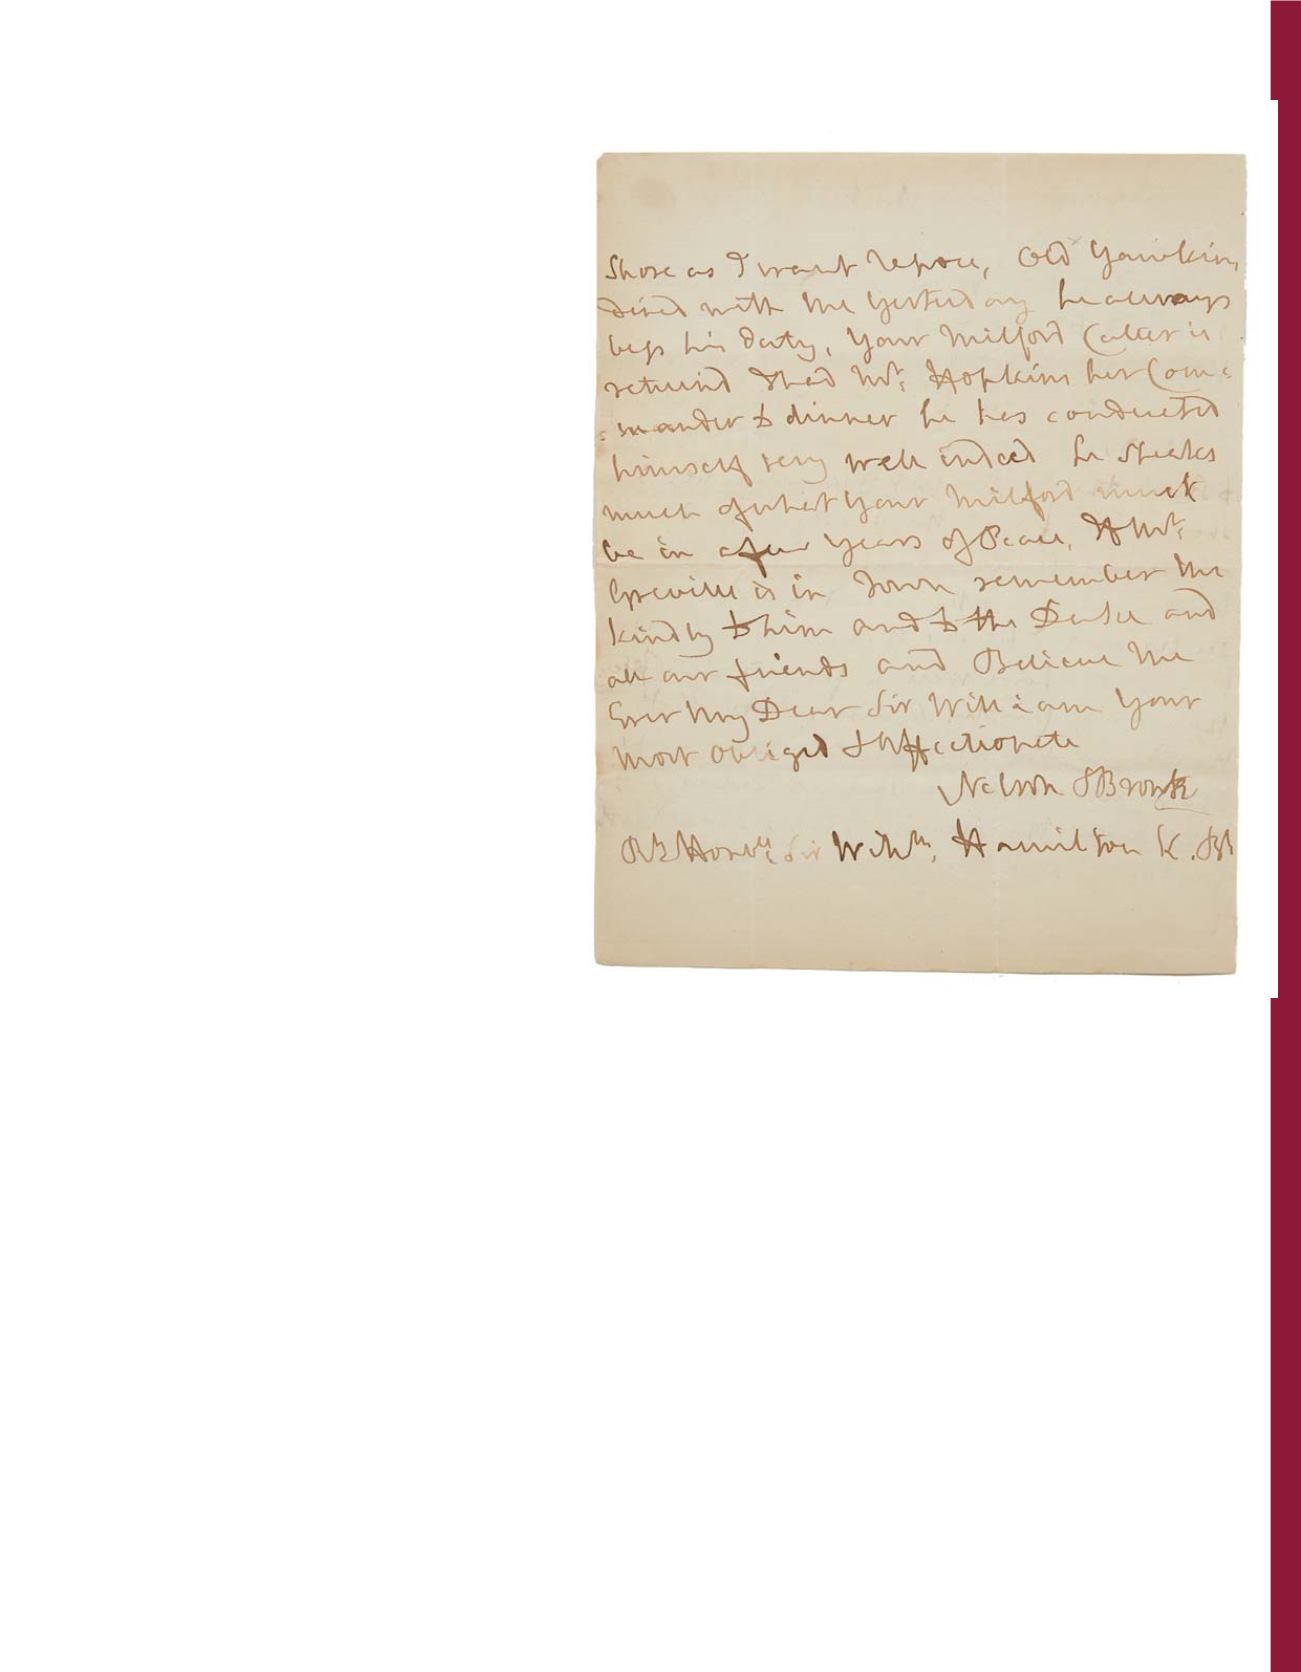 Shore as I want repose, Old Yawkins
dined with me yesterday he always
begs his duty, Your Milford Cutter is
returnd I had Mr: Hopkins her Com=
=mander to dinner he has conducted
himself very well indeed he speaks
much of what your Milford must
be in a few years of Peace, If Mr:
Greville is in Town remember me
kindly to him and to the Duke and
all our friends and Believe me
Ever My Dear Sir William Your
most obliged & Affectionate
Nelson & Bronte
Rt Honble: Sir Willm. Hamilton K.Bh